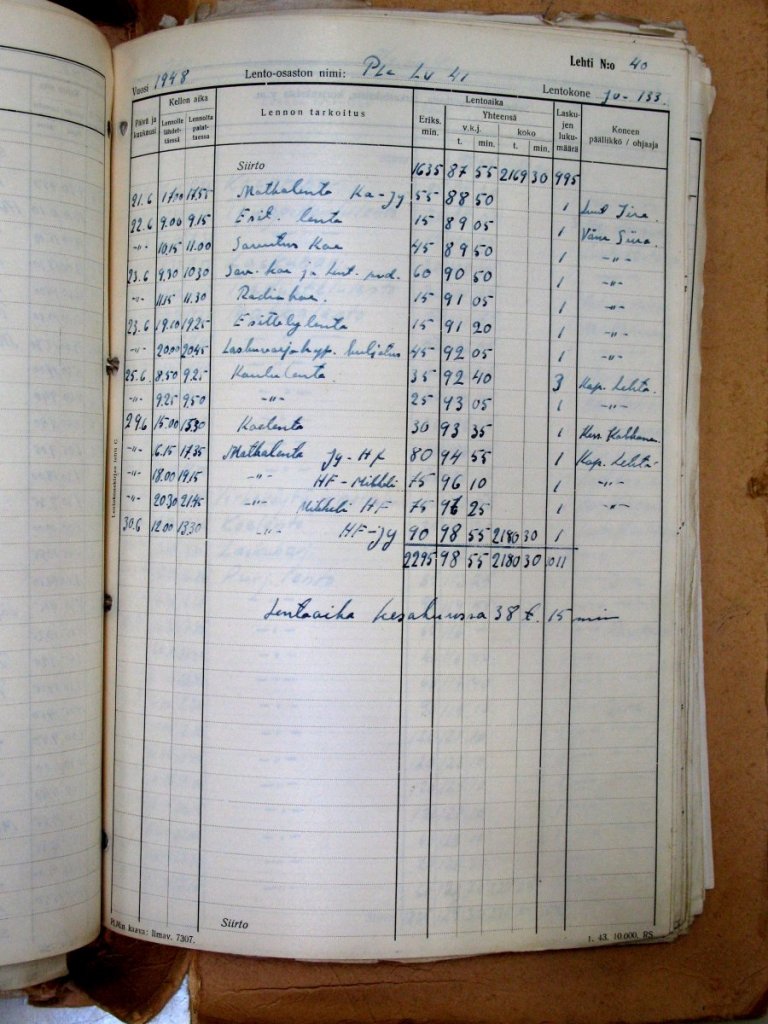 Lehti N:o 40
Vuosi 1948 Lento-osaston nimi: PLe Lv 41
Lentokone JU-133.
Päivä ja kuukausi Kellon aika Lennolle lähdettäessä Lennolta palattaessa Lennon tarkoitus Lentoaika Eriks. min. Yhteensä v.k.j. t. min. koko t. min. Laskujen lukumäärä Koneen päällikkö / ohjaaja
Siirto 1635 87 55 2169 30 995
21.6 17.00 17.55 Matkalento Ka-Jy 55 88 50 1
22.6 9.00 9.15 Esit. lento 15 89 05 1
-"- 10.15 11.00 Koe 45 89 50 1 -"-
23.6 9.30 10.30 koe ja 60 90 50 1 -"-
-"- 11.15 11.30 Radiokoe. 15 91 05 1 -"-
23.6 19.10 19.25 Esittelylento 15 91 20 1 -"-
-"- 20.00 20.45 Laskuvarjohypp. kuljetus 45 92 05 1 -"-
25.6 8.50 9.25 Koululento 35 92 40 3 Kap. Lehto
-"- 9.25 9.50 -"- 25 93 05 1 -"-
29.6 15.00 15.30 Koelento 30 93 35 1
-"- 6.15 17.35 Matkalento Jy-HF 80 94 55 1 Kap. Lehto
-"- 18.00 19.15 -"- HF-Mikkeli 75 96 10 1 -"-
-"- 20.30 21.45 -"- Mikkeli HF 75 97 25 1 -"-
30.6 12.00 13.30 -"- HF-Jy 90 98 55 2180 30 1
2295 98 55 2180 30 1011
Lentoaika kesäkuussa 38 t. 15 min
Siirto
Pl.Mn kaava: Ilmav. 7307.
1. 43. 10.000. RS.